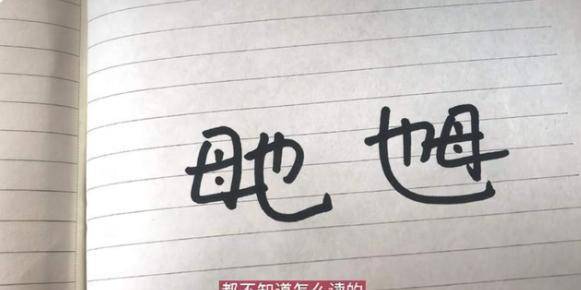 毑 乸
都不知道怎么读的